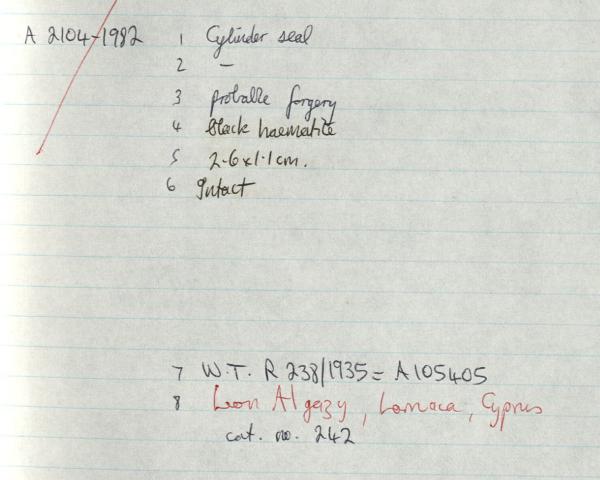 A 2104-1982 1 Cylinder seal
2 —
3 probable forgery
4 black haematite
5 2.6 x 1.1 cm.
6 Intact
7 W.T. R 238/1935 = A105405
8 Leon Algazy, Larnaca, Cyprus
cat. no. 242